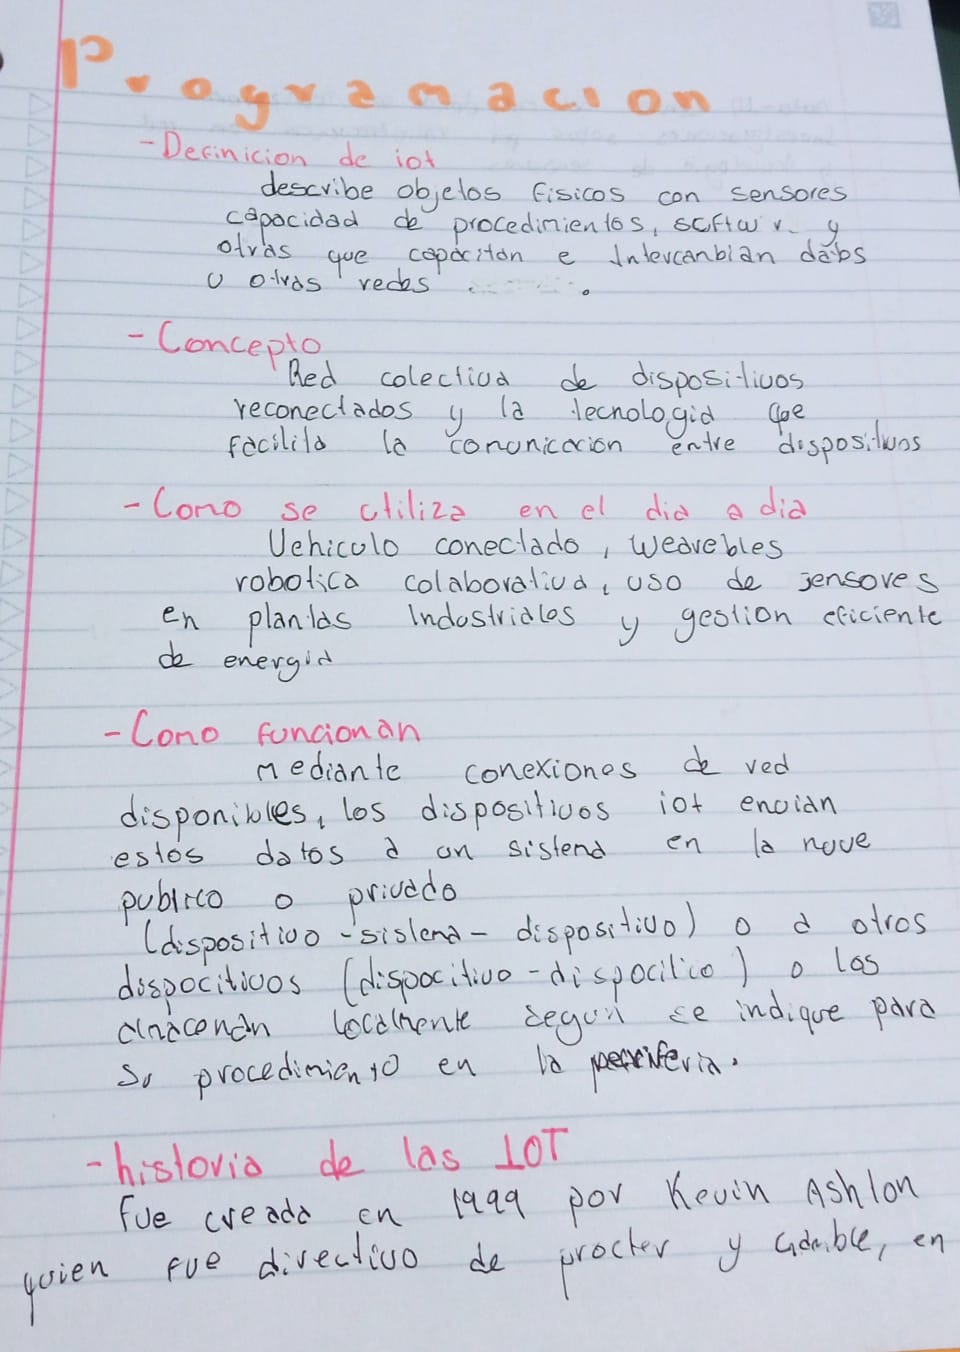 Programacion
- Definicion de iot
describe objetos fisicos con sensores
capacidad de procedimientos, softwr y
otras que capacitan e Intercanbian datos
u otras redes .
- Concepto
Red colectiva de dispositivos
reconectados y la tecnologia que
facilita la comunicacion entre dispositivos
- Como se utiliza en el dia a dia
Vehiculo conectado, wearebles
robotica colaborativa, uso de sensores
en plantas Industriales y gestion eficiente
de energia
- Como funcionan
mediante conexiones de red
disponibles, los dispositivos iot envian
estos datos a un sistema en la nuve
publico o privado
(dispositivo - sistema - dispositivo) o a otros
dispocitivos (dispocitivo - dispocitico) o los
almacenan localmente segun se indique para
su procedimiento en la periferia.
- historia de las IOT
fue creada en 1999 por Kevin Ashton
quien fue directivo de procter y Gamble, en